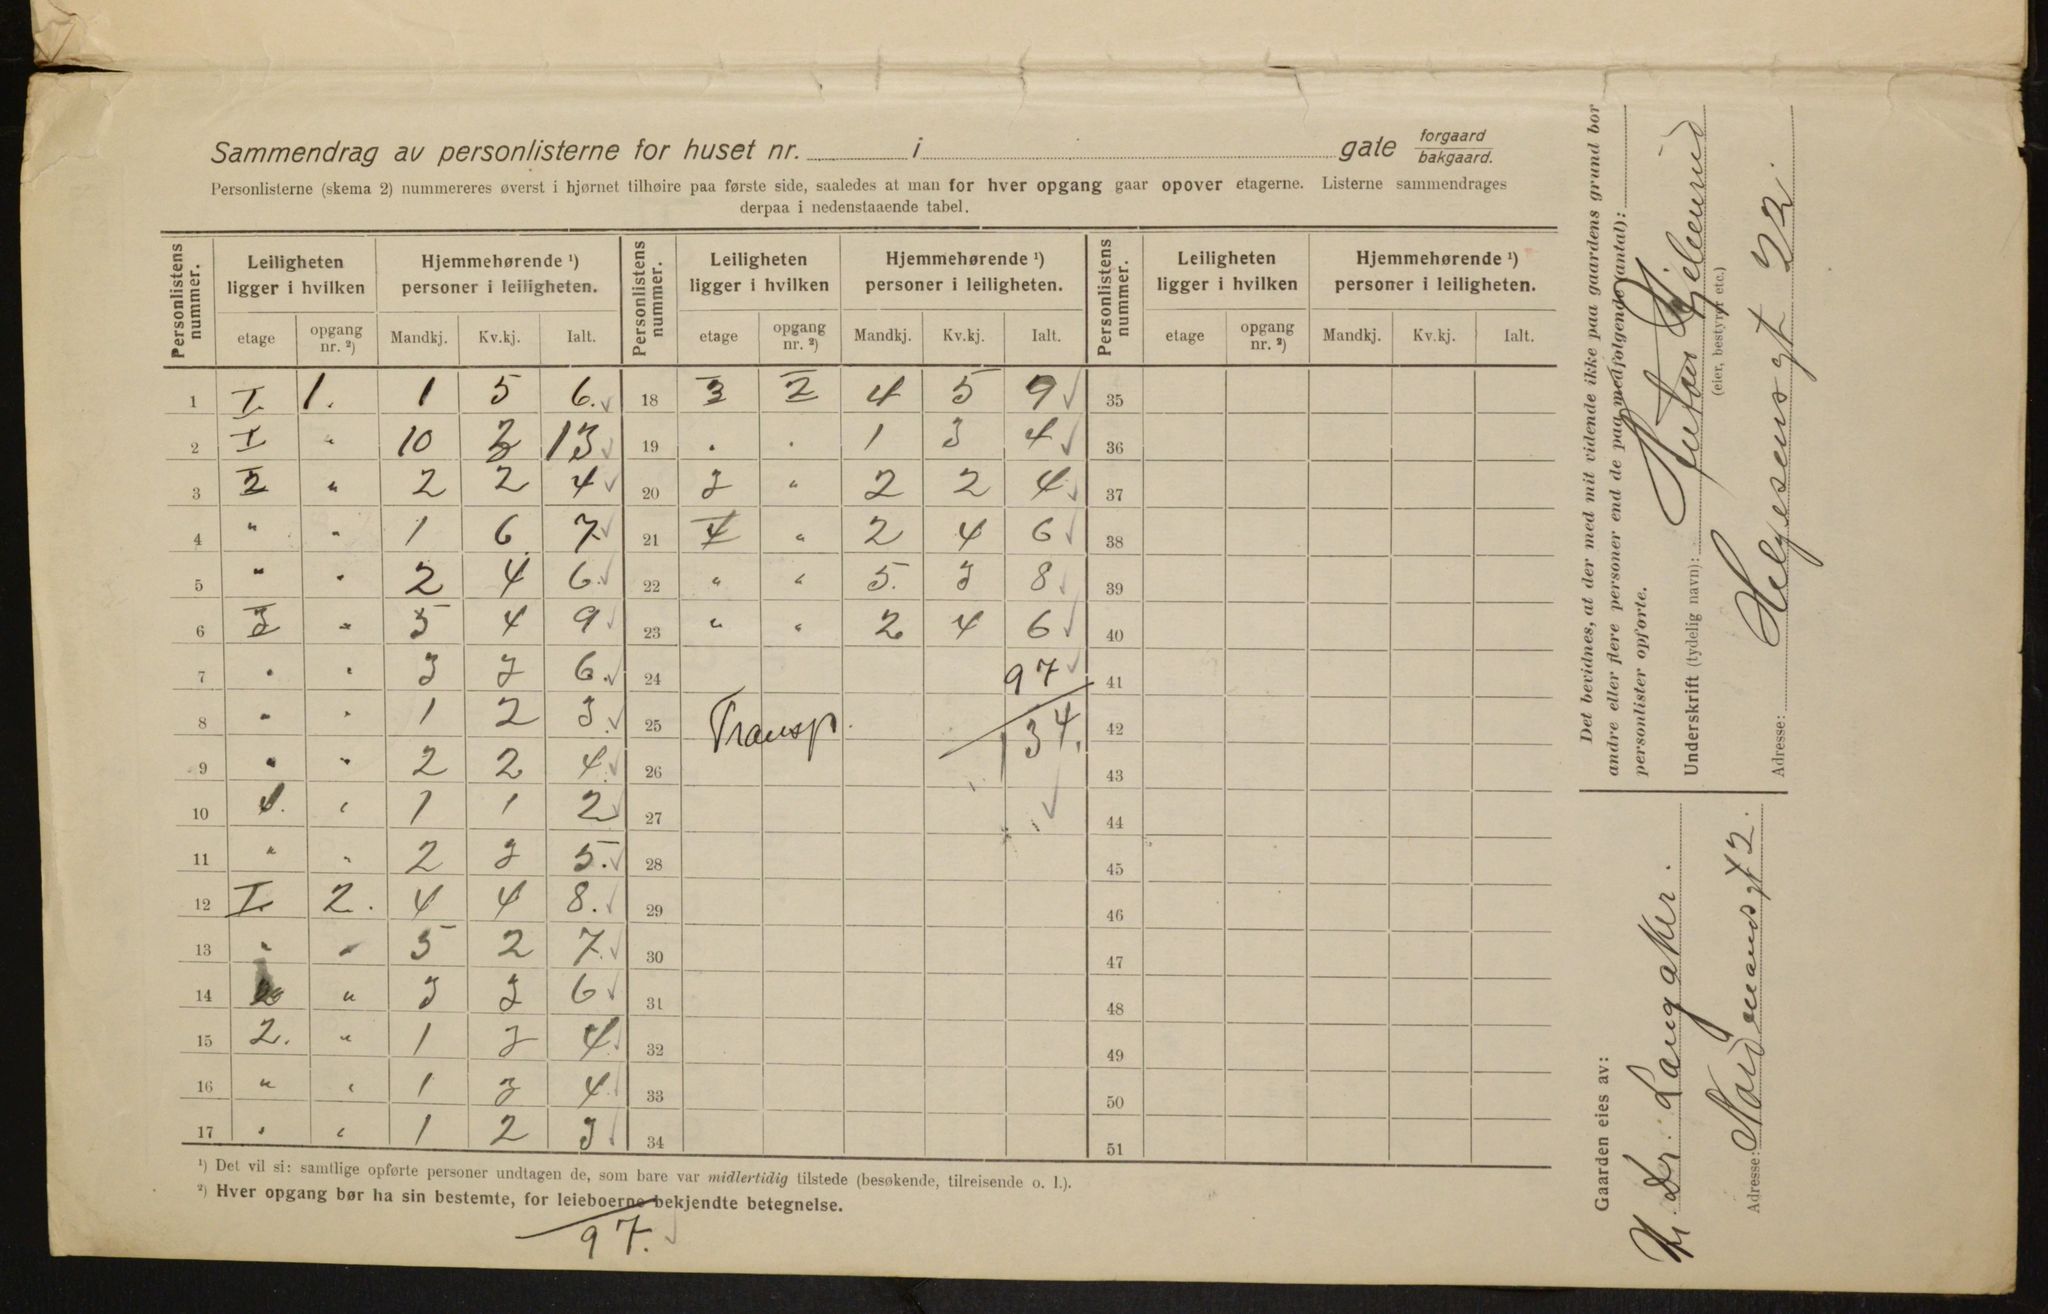 Sammendrag av personlisterne for huset nr. i gate forgaard bakgaard.
Personlisterne (skema 2) nummereres øverst i hjørnet tilhøire paa første side, saaledes at man for hver opgang gaar opover etagerne. Listerne sammendrages
derpaa i nedenstaaende tabel.
Personlistens nummer. Leiligheten ligger i hvilken Hjemmehørende ¹) personer i leiligheten. Personlistens nummer. Leiligheten ligger i hvilken Hjemmehørende ¹) personer i leiligheten. Personlistens nummer. Leiligheten ligger i hvilken Hjemmehørende ¹) personer i leiligheten.
etage opgang nr. ²) Mandkj. Kv.kj. Ialt. etage opgang nr. ²) Mandkj. Kv.kj. Ialt. etage opgang nr. ²) Mandkj. Kv.kj. Ialt.
1 I. 1. 1 5 6. 18 3 2 4 5 9 35
2 I " 10 3 13 19 " " 1 3 4 36
3 2 " 2 2 4 20 3 " 2 2 4 37
4 " " 1 6 7. 21 4 " 2 4 6 38
5 " " 2 4 6. 22 " " 5. 3 8 39
6 3 " 5 4 9 23 " " 2 4 6 40
7 " " 3 3 6. 24 97 41
8 " " 1 2 3. 25 Transp. 134. 42
9 " " 2 2 4. 26 43
10 4. " 1 1 2 27 44
11 " " 2 3 5. 28 45
12 I. 2. 4 4 8. 29 46
13 " " 5 2 7. 30 47
14 " 3 3 6 31 48
15 2. " 1 3 4. 32 49
16 " " 1 3 4 33 50
17 " " 1 2 3. 34 51
¹) Det vil si: samtlige opførte personer undtagen de, som bare var midlertidig tilstede (besøkende, tilreisende o. l.).
²) Hver opgang bør ha sin bestemte, for leieboerne bekjendte betegnelse.
97.
Det bevidnes, at der med mit vidende ikke paa gaardens grund bor
andre eller flere personer end de paa medfølgende (antal):
personlister opførte.
Underskrift (tydelig navn): Anton Gjelmerud
(eier, bestyrer etc.)
Adresse: Helgesens gt 22.
Gaarden eies av:
H. Dr. Langaker.
Adresse: Nordmands gt 2.